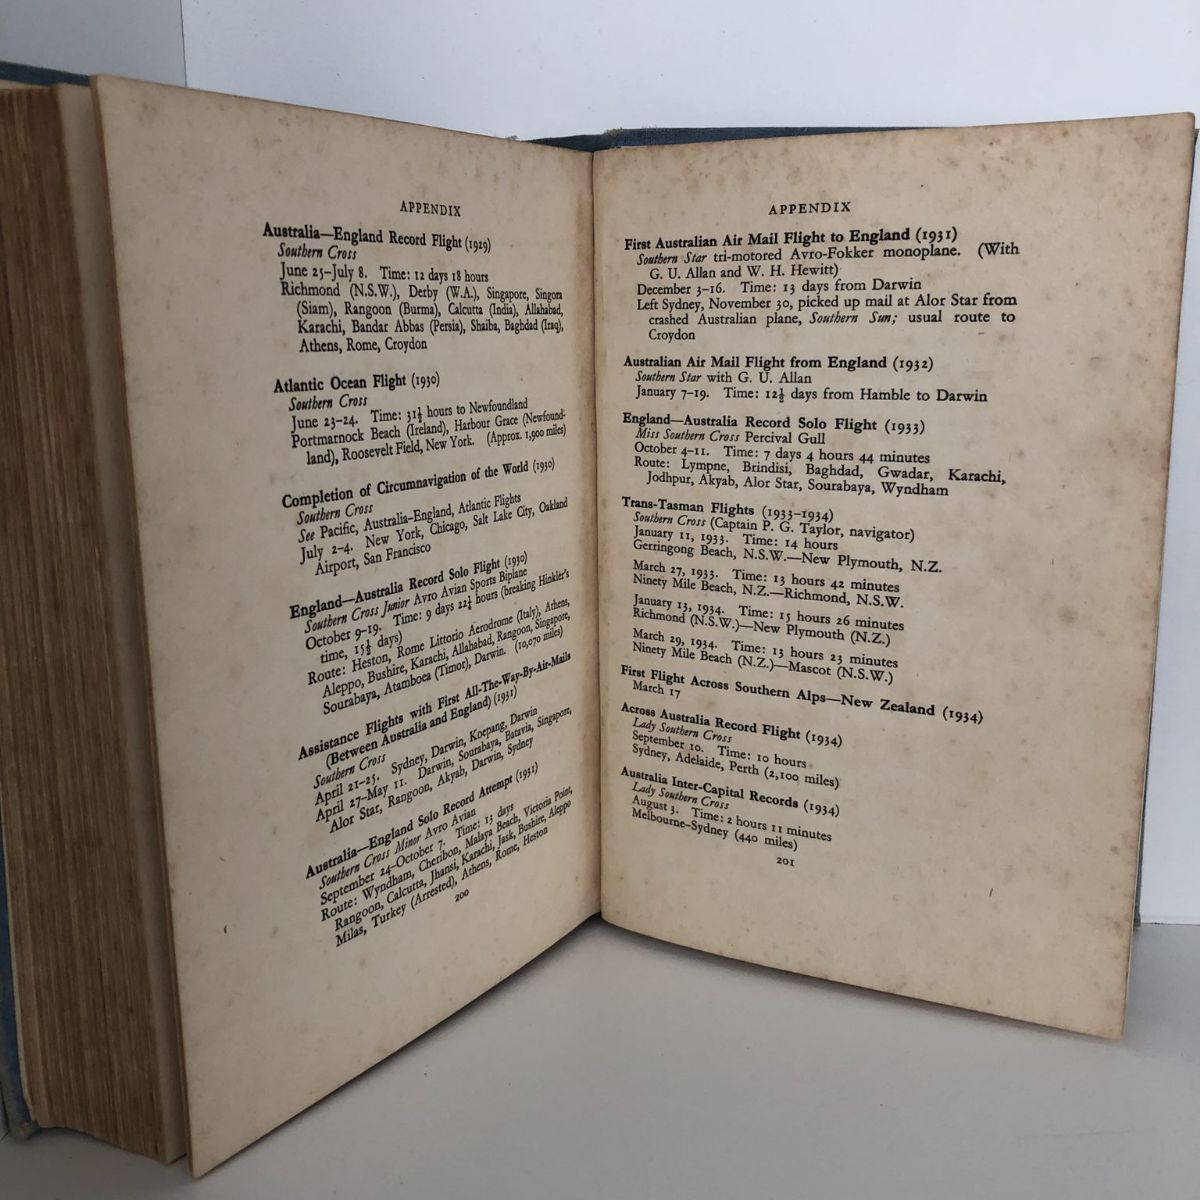 APPENDIX
Australia—England Record Flight (1929)
Southern Cross
June 25–July 8. Time: 12 days 18 hours
Richmond (N.S.W.), Derby (W.A.), Singapore, Singora
(Siam), Rangoon (Burma), Calcutta (India), Allahabad,
Karachi, Bandar Abbas (Persia), Shaiba, Baghdad (Iraq),
Athens, Rome, Croydon
Atlantic Ocean Flight (1930)
Southern Cross
June 23–24. Time: 31½ hours to Newfoundland
Portmarnock Beach (Ireland), Harbour Grace (Newfound-
land), Roosevelt Field, New York. (Approx. 1,900 miles)
Completion of Circumnavigation of the World (1930)
Southern Cross
See Pacific, Australia-England, Atlantic Flights
July 2–4. New York, Chicago, Salt Lake City, Oakland
Airport, San Francisco
England—Australia Record Solo Flight (1930)
Southern Cross Junior Avro Avian Sports Biplane
October 9–19. Time: 9 days 22¼ hours (breaking Hinkler's
time, 15½ days)
Route: Heston, Rome Littorio Aerodrome (Italy), Athens,
Aleppo, Bushire, Karachi, Allahabad, Rangoon, Singapore,
Sourabaya, Atamboea (Timor), Darwin. (10,070 miles)
Assistance Flights with First All-The-Way-By-Air-Mails
(Between Australia and England) (1931)
Southern Cross
April 21–25. Sydney, Darwin, Koepang, Darwin
April 27–May 11. Darwin, Sourabaya, Batavia, Singapore,
Alor Star, Rangoon, Akyab, Darwin, Sydney
Australia—England Solo Record Attempt (1931)
Southern Cross Minor Avro Avian
September 24–October 7. Time: 13 days
Route: Wyndham, Cheribon, Malaya Beach, Victoria Point,
Rangoon, Calcutta, Jhansi, Karachi, Jask, Bushire, Aleppo
Milas, Turkey (Arrested), Athens, Rome, Heston
200
APPENDIX
First Australian Air Mail Flight to England (1931)
Southern Star tri-motored Avro-Fokker monoplane. (With
G. U. Allan and W. H. Hewitt)
December 3–16. Time: 13 days from Darwin
Left Sydney, November 30, picked up mail at Alor Star from
crashed Australian plane, Southern Sun; usual route to
Croydon
Australian Air Mail Flight from England (1932)
Southern Star with G. U. Allan
January 7–19. Time: 12½ days from Hamble to Darwin
England—Australia Record Solo Flight (1933)
Miss Southern Cross Percival Gull
October 4–11. Time: 7 days 4 hours 44 minutes
Route: Lympne, Brindisi, Baghdad, Gwadar, Karachi,
Jodhpur, Akyab, Alor Star, Sourabaya, Wyndham
Trans-Tasman Flights (1933–1934)
Southern Cross (Captain P. G. Taylor, navigator)
January 11, 1933. Time: 14 hours
Gerringong Beach, N.S.W.—New Plymouth, N.Z.
March 27, 1933. Time: 13 hours 42 minutes
Ninety Mile Beach, N.Z.—Richmond, N.S.W.
January 13, 1934. Time: 15 hours 26 minutes
Richmond (N.S.W.)—New Plymouth (N.Z.)
March 29, 1934. Time: 13 hours 23 minutes
Ninety Mile Beach (N.Z.)—Mascot (N.S.W.)
First Flight Across Southern Alps—New Zealand (1934)
March 17
Across Australia Record Flight (1934)
Lady Southern Cross
September 10. Time: 10 hours
Sydney, Adelaide, Perth (2,100 miles)
Australia Inter-Capital Records (1934)
Lady Southern Cross
August 3. Time: 2 hours 11 minutes
Melbourne–Sydney (440 miles)
201